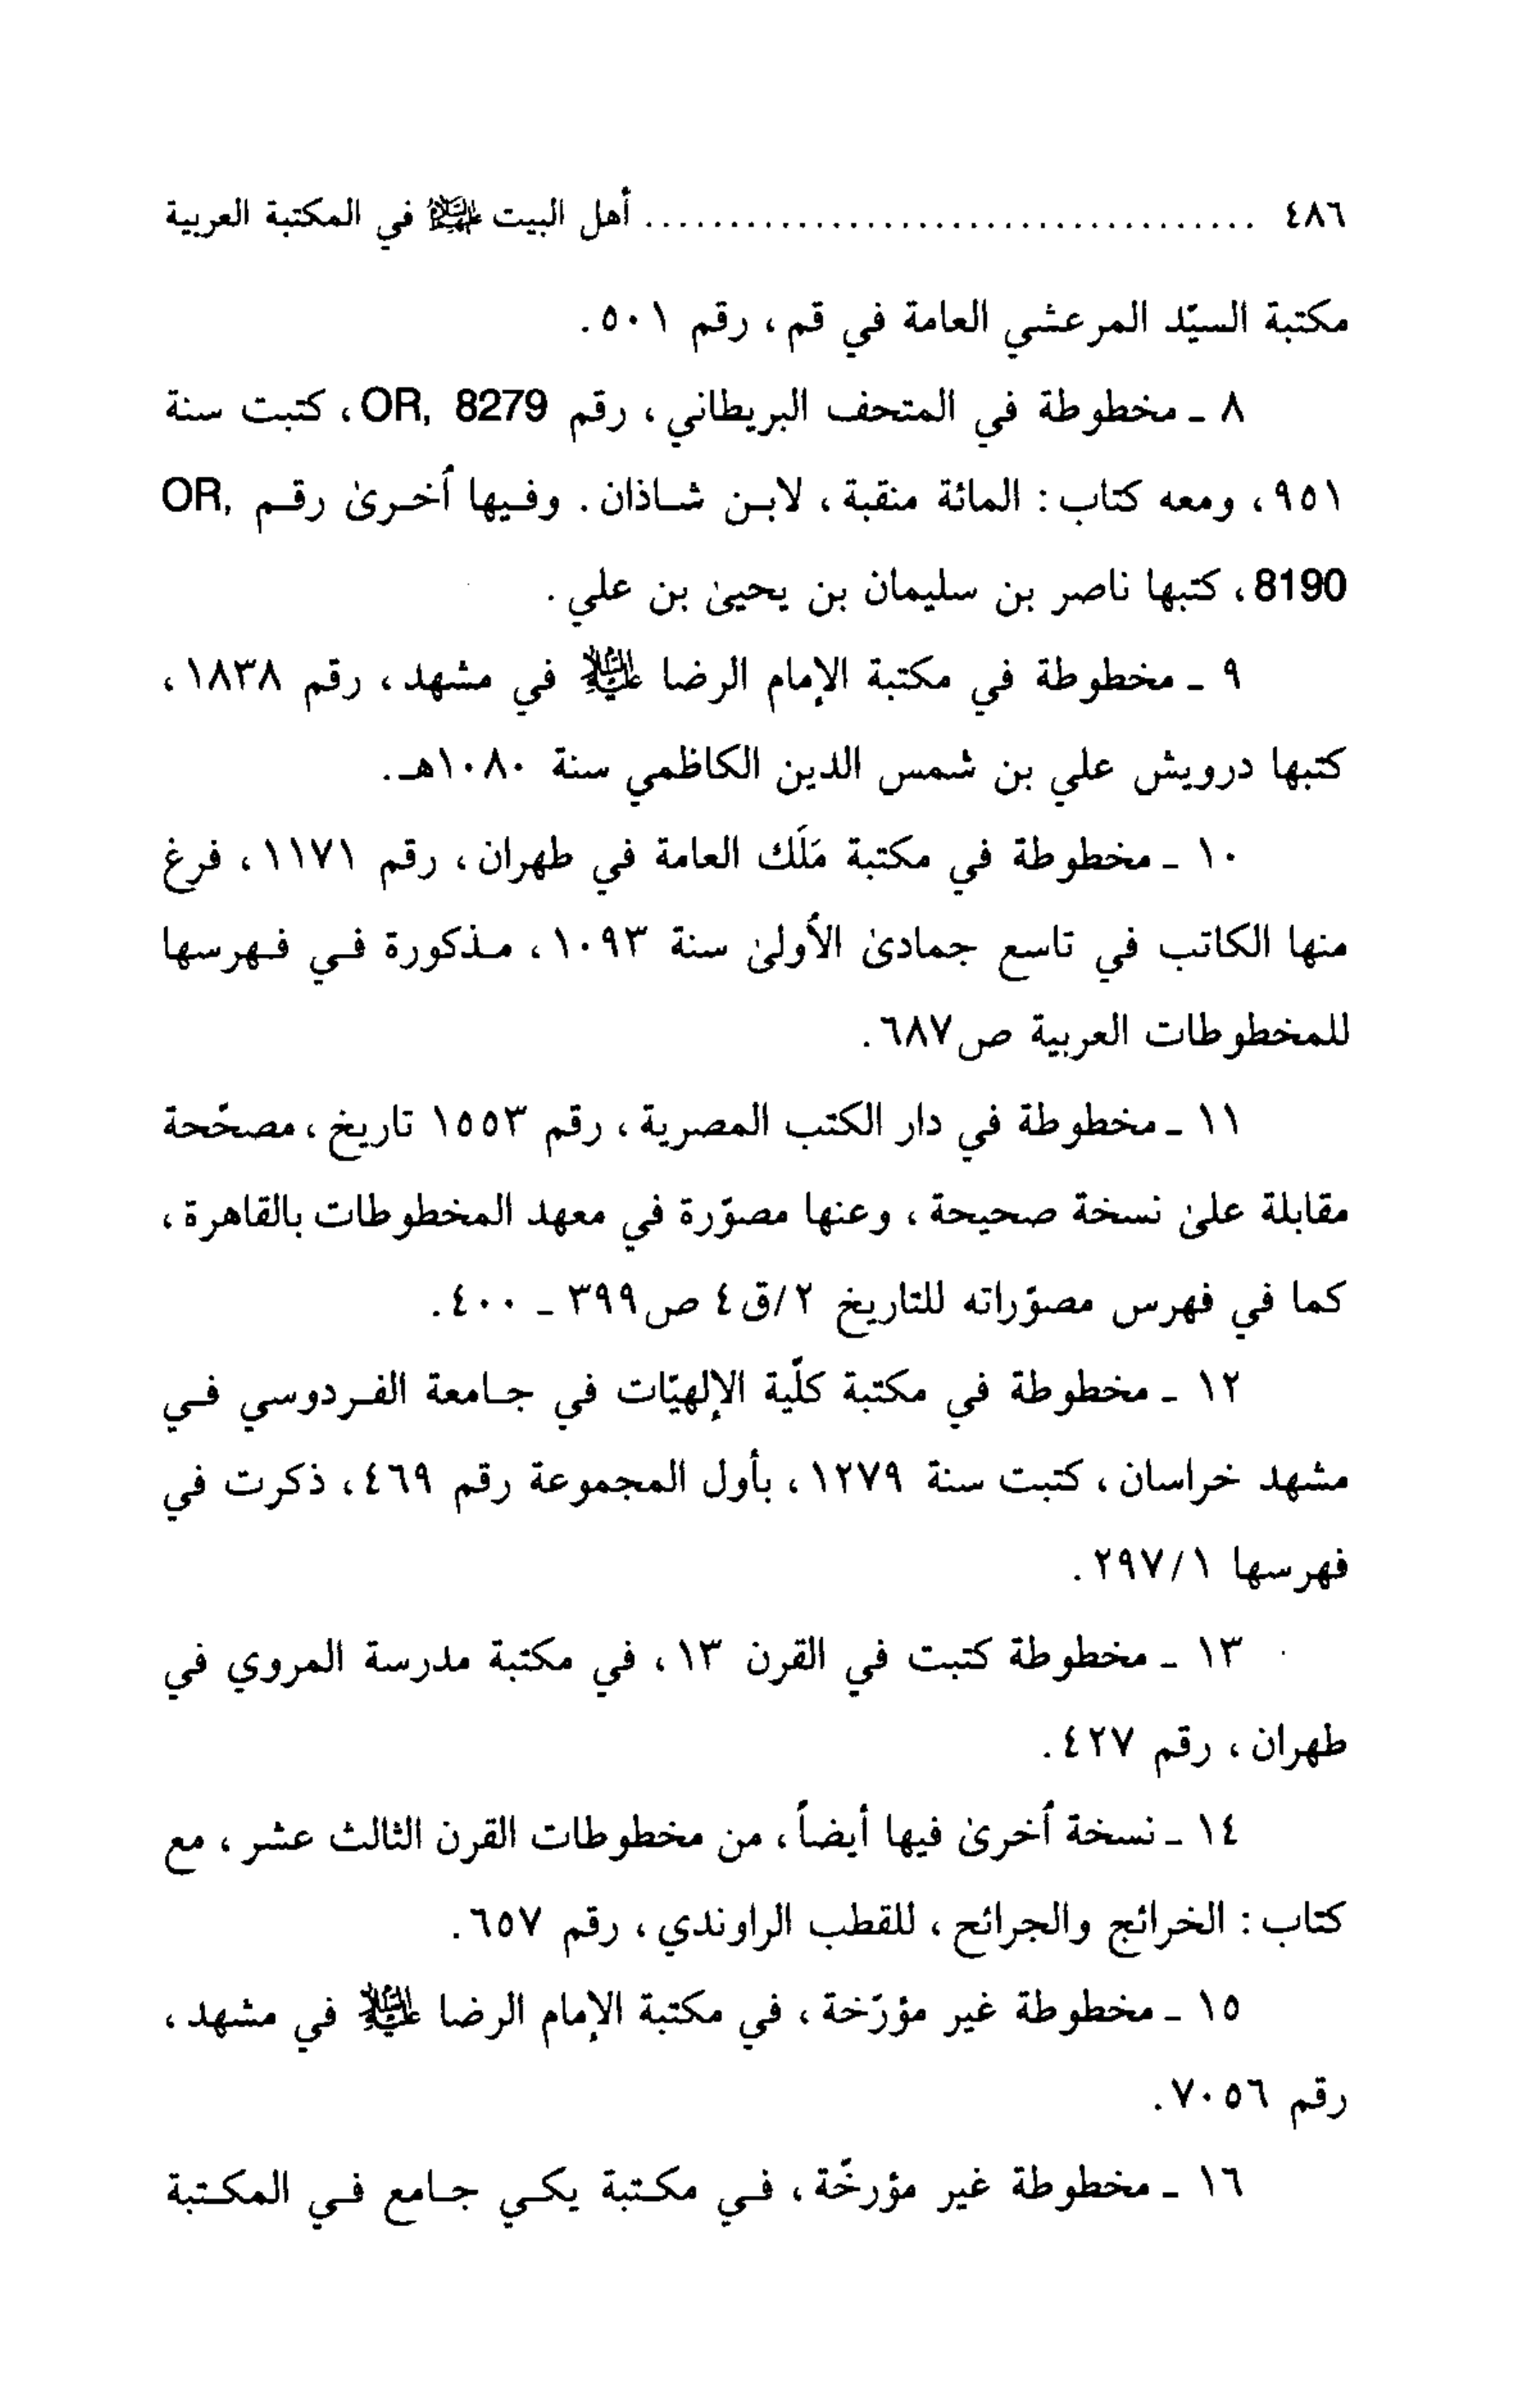 ٤٨٦ ..................................... أهل البيت عليهم السلام في المكتبة العربية
مكتبة السيّد المرعشي العامة في قم ، رقم ٥٠١ .
٨ ـ مخطوطة في المتحف البريطاني ، رقم OR, 8279 ، كتبت سنة
٩٥١ ، ومعه كتاب : المائة منقبة ، لابـن شـاذان . وفـيها أُخـرىٰ رقـم OR,
8190 ، كتبها ناصر بن سليمان بن يحيىٰ بن علي .
٩ ـ مخطوطة في مكتبة الإمام الرضا عليه السلام في مشهد ، رقم ١٨٣٨ ،
كتبها درويش علي بن شمس الدين الكاظمي سنة ١٠٨٠هـ .
١٠ ـ مخطوطة في مكتبة مَلَك العامة في طهران ، رقم ١١٧١ ، فرغ
منها الكاتب في تاسع جمادىٰ الأُولىٰ سنة ١٠٩٣ ، مـذكورة فـي فـهرسها
للمخطوطات العربية ص٦٨٧ .
١١ ـ مخطوطة في دار الكتب المصرية ، رقم ١٥٥٣ تاريخ ، مصحّحة
مقابلة علىٰ نسخة صحيحة ، وعنها مصوّرة في معهد المخطوطات بالقاهرة ،
كما في فهرس مصوّراته للتاريخ ٢/ق٤ ص٣٩٩ ـ ٤٠٠ .
١٢ ـ مخطوطة في مكتبة كلّية الإلهيّات في جـامعة الفـردوسي فـي
مشهد خراسان ، كتبت سنة ١٢٧٩ ، بأول المجموعة رقم ٤٦٩ ، ذكرت في
فهرسها ٢٩٧/١ .
١٣ ـ مخطوطة كتبت في القرن ١٣ ، في مكتبة مدرسة المروي في
طهران ، رقم ٤٢٧ .
١٤ ـ نسخة أُخرىٰ فيها أيضاً ، من مخطوطات القرن الثالث عشر ، مع
كتاب : الخرائج والجرائح ، للقطب الراوندي ، رقم ٦٥٧ .
١٥ ـ مخطوطة غير مؤرّخة ، في مكتبة الإمام الرضا عليه السلام في مشهد ،
رقم ٧٠٥٦ .
١٦ ـ مخطوطة غير مؤرخّة ، فـي مكـتبة يكـي جـامع فـي المكـتبة